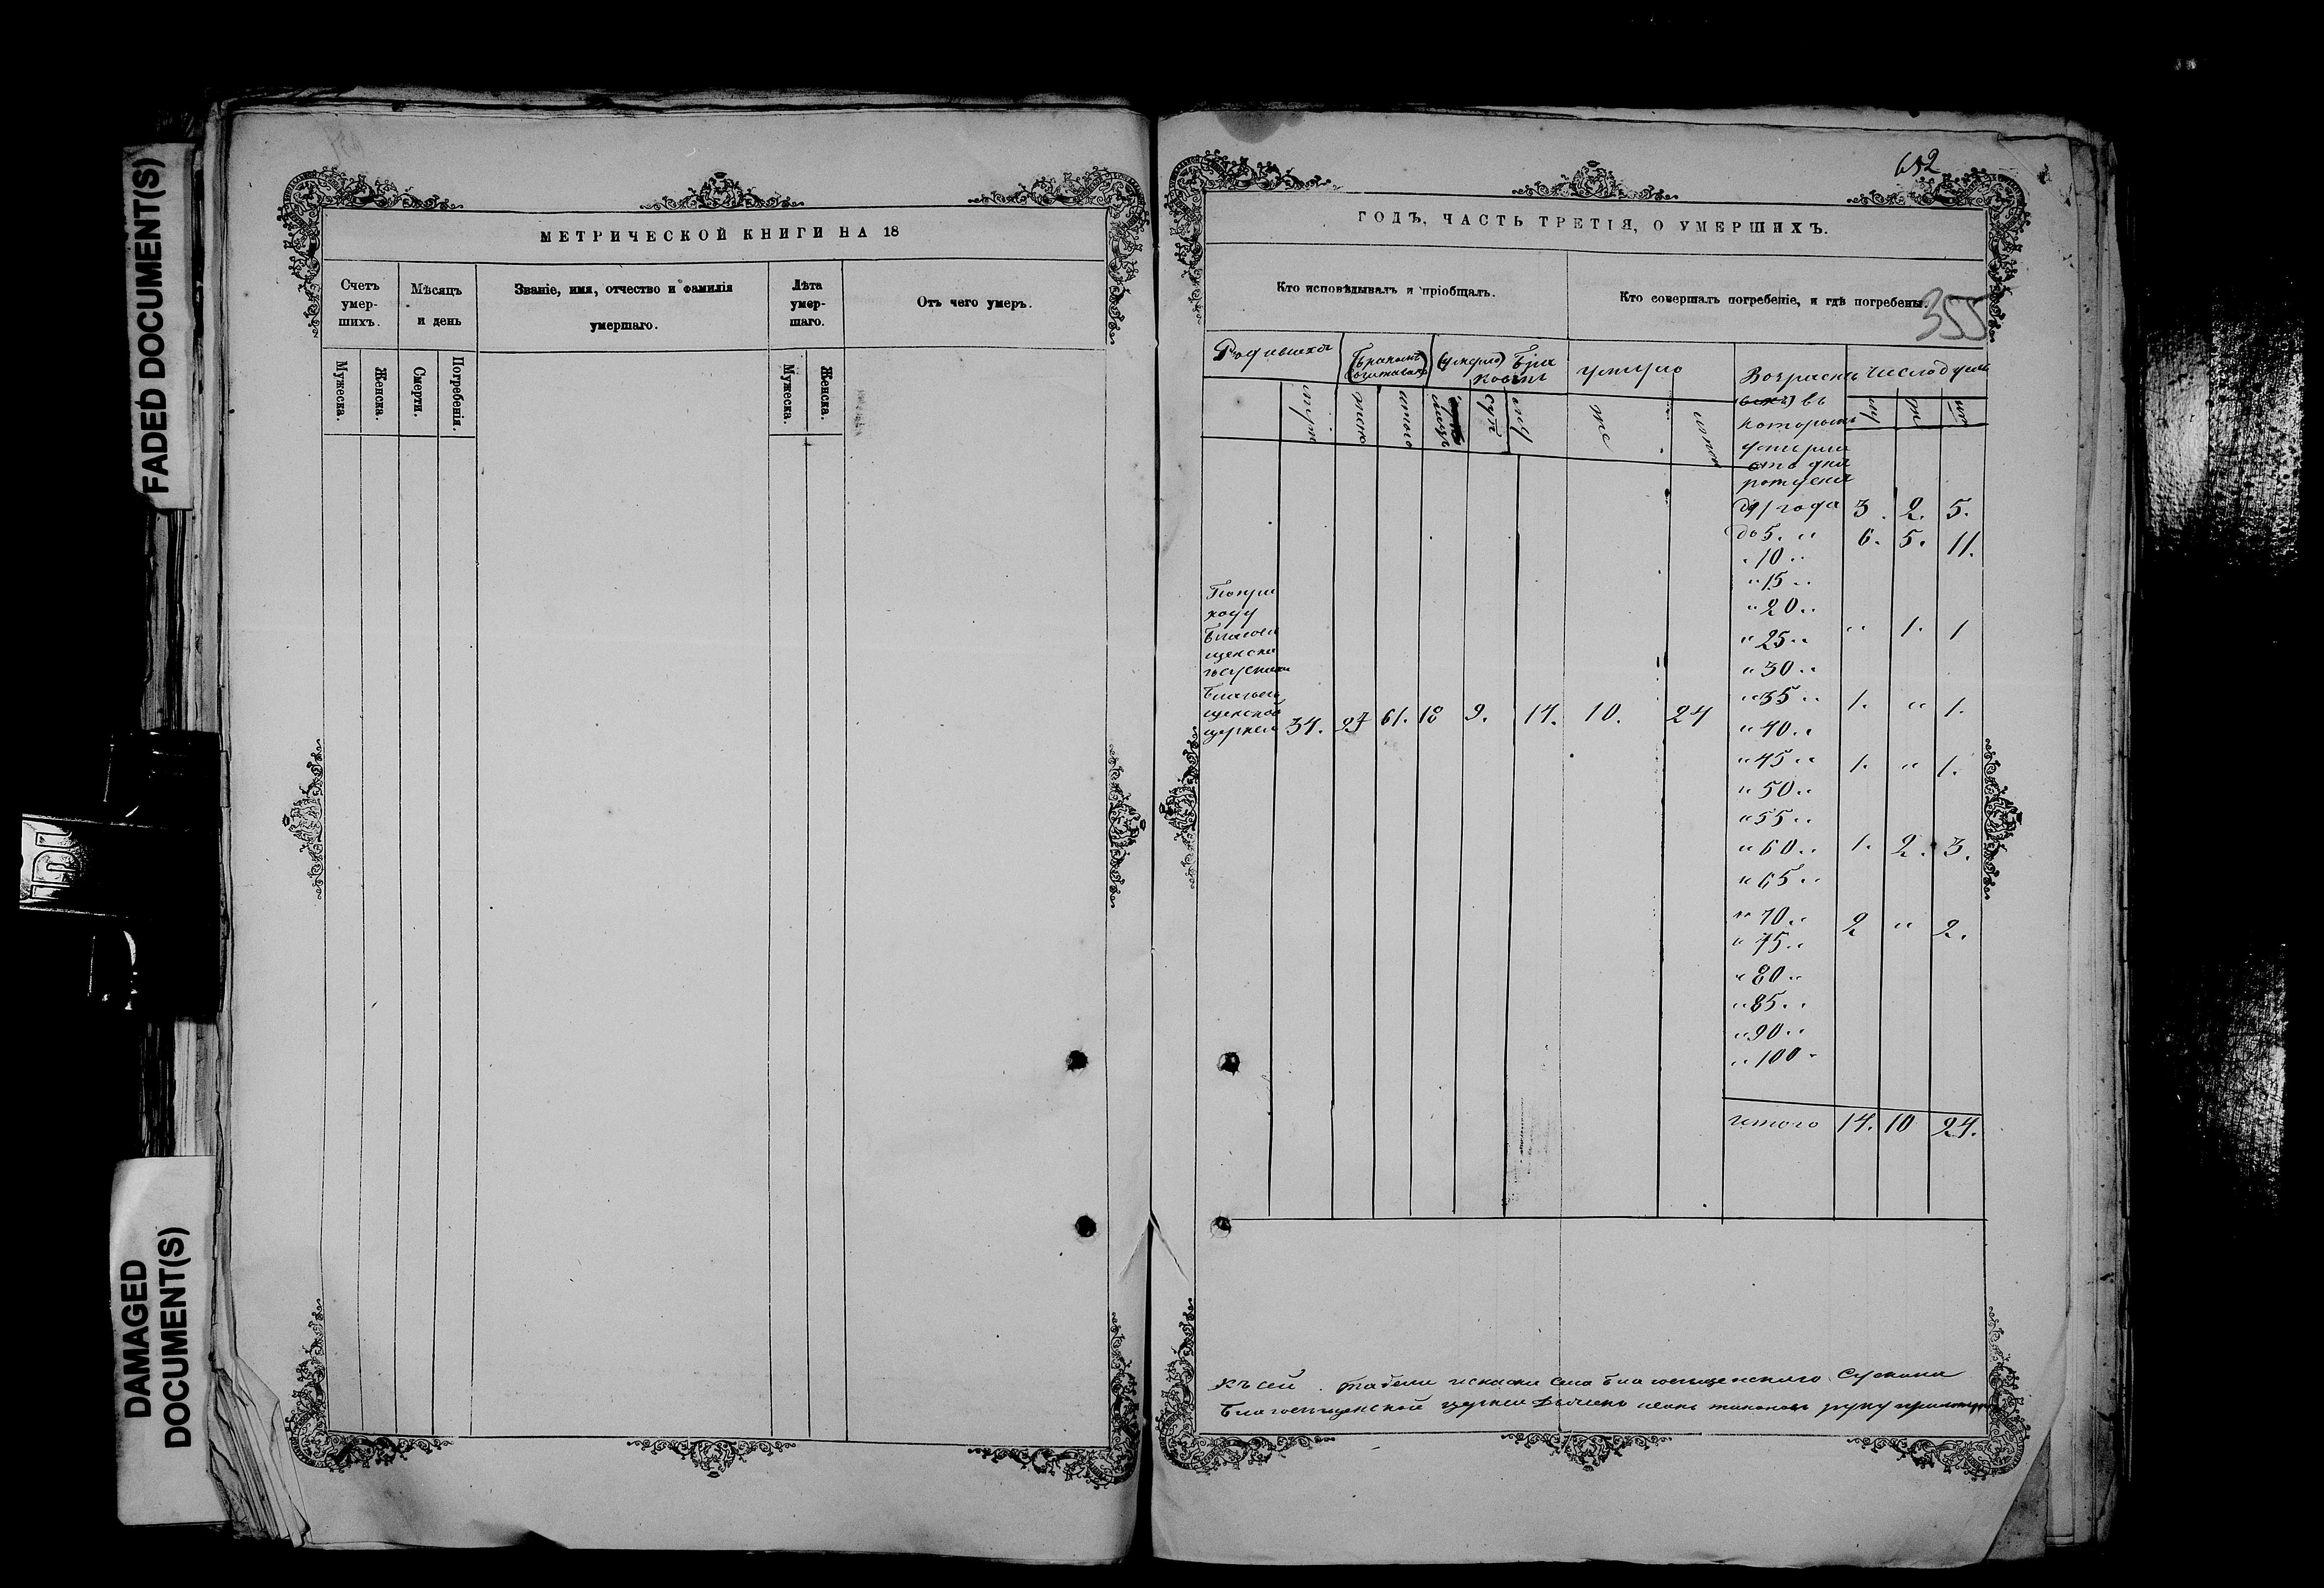 FADED DOCUMENT(S)
DAMAGED
DOCUMENT(S)
МЕТРИЧЕСКОЙ КНИГИ НА 18
Счетъ
умер-
шихъ.
Мѣсяцъ
и день
Званіе, имя, отчество и фамилія
умершаго.
Лѣта
умер-
шаго.
Отъ чего умеръ.
Мужеска.
Женска.
Смерти.
Погребенія.
Мужеска.
Женска.
652
ГОДЪ, ЧАСТЬ ТРЕТІЯ, О УМЕРШИХЪ.
Кто исповѣдывалъ и пріобщалъ.
Кто совершалъ погребеніе, и гдѣ погребены.
355
Возрастъ число душъ
въ
которомъ
умерли
отъ дня
рожденія
до 1 года 3. 2. 5.
до 5. " 6. 5. 11.
" 10 "
" 15 "
" 20 "
" 25 " " 1. 1
" 30 "
" 35 " 1. " 1.
" 40 "
" 45 " 1. " 1.
" 50 "
" 55 "
" 60 " 1. 2. 3.
" 65 "
" 70 " 2 " 2.
" 75 "
" 80 "
" 85 "
" 90 "
" 100 "
итого 14. 10 24.
По при
ходу
Благовѣ
щенско
Благовѣ
щенской
церкви 34. 27 61. 18 9. 14. 10. 24
Къ сей табели села Благовѣщенскаго
Благовѣщенской церкви руку